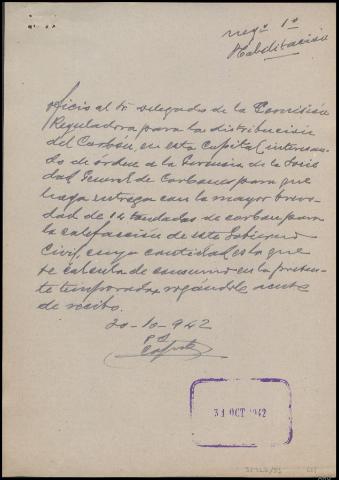 Negº 1º
Habilitación
Oficio al Sr Delegado de la Comisión
Reguladora para la distribución
del Carbon, en esta Capital, interesan-
do de órden a la Gerencia de la Socie
dad General de Carbones para que
haga entrega con la mayor breve-
dad de 14 toneladas de carbon para
la calefacción de este Gobierno
Civil, cuya cantidad es la que
se calcula de consumo en la presen-
te temporada, rogándole acuse
de recibo.
20-10-942
31 OCT 1942